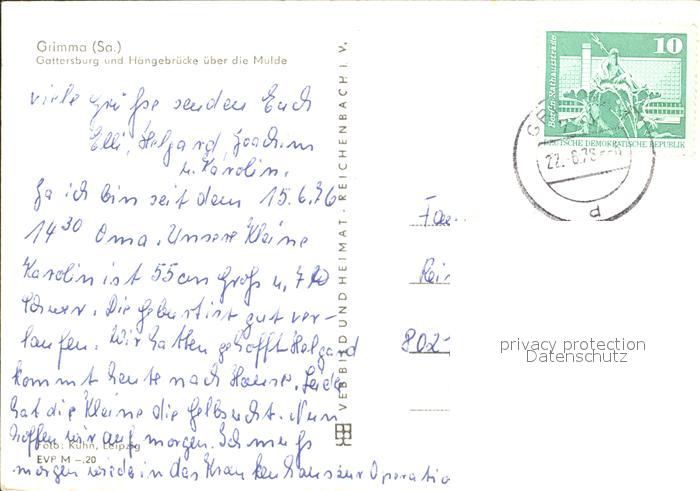 Grimma (Sa.)
Gattersburg und Hängebrücke über die Mulde
viele Grüße senden Euch
Elli, Helgard, Joachim
u. Karolin.
Ja ich bin seit dem 15.6.76
14 30 Oma. Unsere Kleine
Karolin ist 55cm groß u.
schwer. Die Geburt ist gut ver-
laufen. Wir hatten gehofft Helgard
kommt heute nach Hause. Leider
hat die Kleine die Gelbsucht. Nun
hoffen wir auf morgen. Ich muß
Foto: Kühn, Leipzig
EVP M –.20
morgen wieder in das Krankenhaus zur Operatio
VEB BILD UND HEIMAT · REICHENBACH I. V.
10
Berlin · Rathausstraße
DEUTSCHE DEMOKRATISCHE REPUBLIK
22.-6.76
d
Fam.
802
privacy protection
Datenschutz